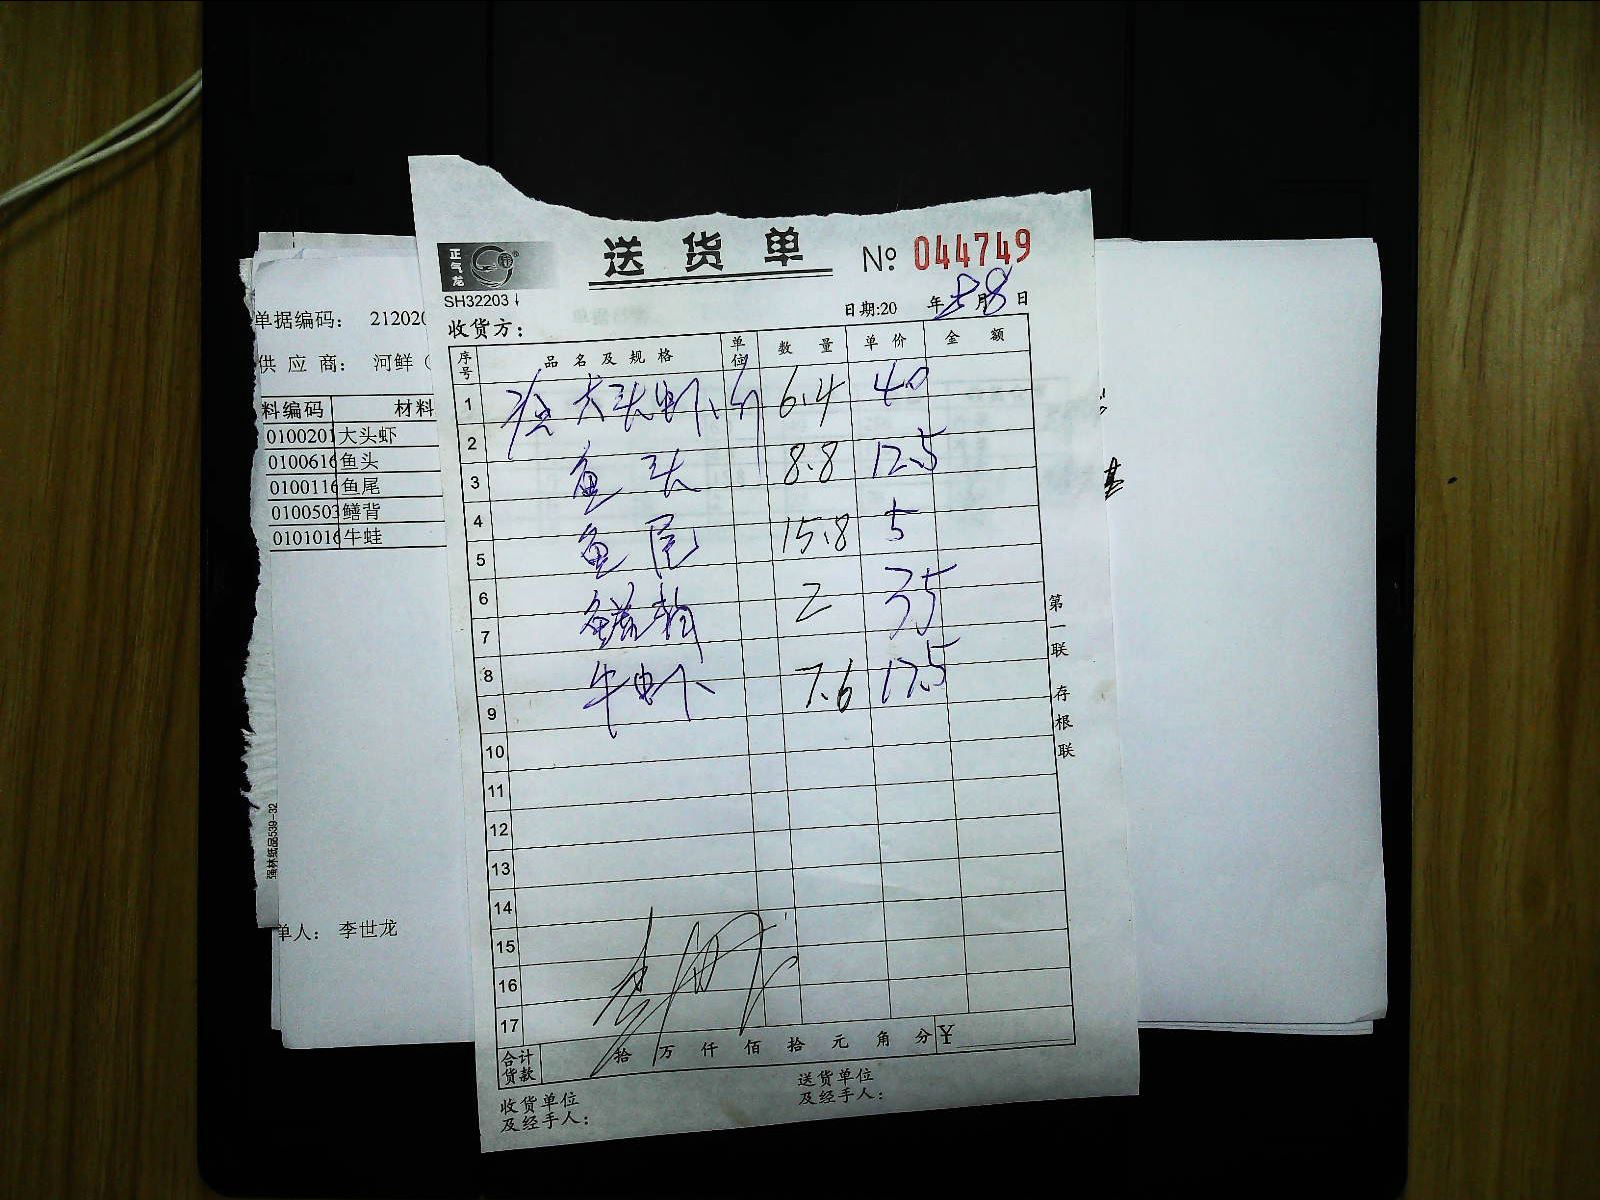 正气龙
送货单
№ 044749
SH32203
日期:20 年 5 月 8 日
收货方：
序号 品名及规格 单位 数量 单价 金额
1 大头虾 斤 6.4 40
2
3 鱼头 8.8 12.5
4
5 鱼尾 15.8 5
6
7 鳝背 2 35
8 牛虾 7.6 17.5
9
10
11
12
13
14
15
16
17
合计货款 拾 万 仟 佰 拾 元 角 分 ¥
收货单位
及经手人：
送货单位
及经手人：
第一联 存根联
单据编码： 212020
供应商： 河鲜（
料编码 材料
0100201 大头虾
0100616 鱼头
0100116 鱼尾
0100503 鳝背
0101016 牛蛙
单人： 李世龙
强林纸品539-32